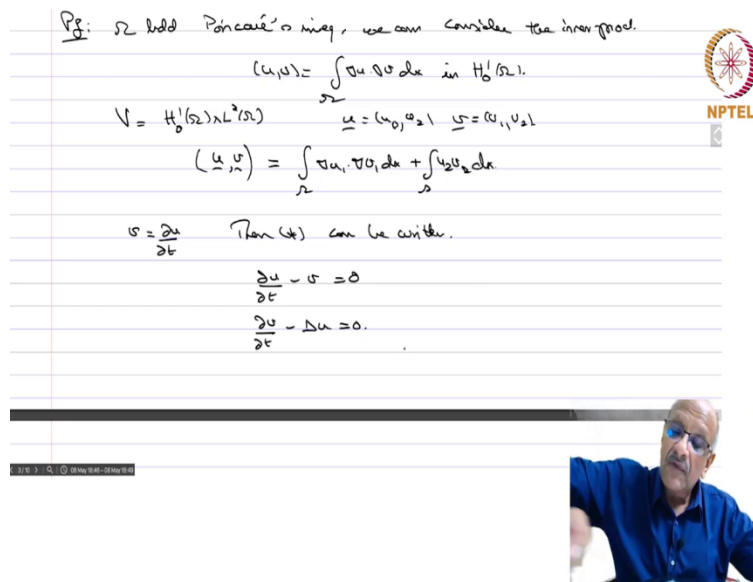 Pf: Ω bdd Poincaré's ineq, we can consider the inner-prod.
(u,v) = ∫_Ω ∇u.∇v dx in H₀¹(Ω).
V = H₀¹(Ω)×L²(Ω) u = (u₁,u₂) v = (v₁,v₂)
(u,v) = ∫_Ω ∇u₁.∇v₁ dx + ∫_Ω u₂v₂ dx
v = ∂u/∂t Then (*) can be written.
∂u/∂t - v = 0
∂v/∂t - Δu = 0.
NPTEL
3/10 08 May 18:46 - 08 May 18:49